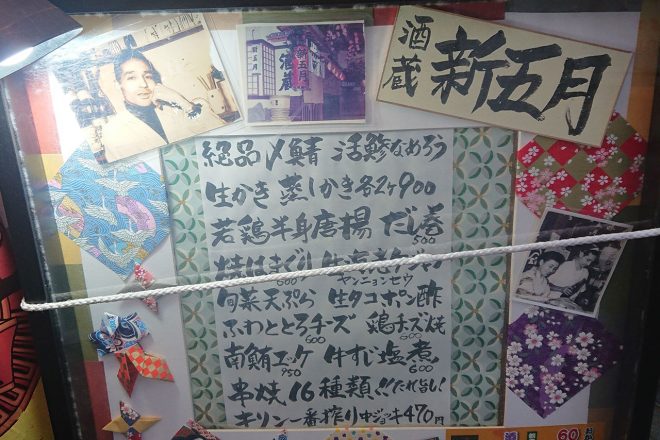 酒蔵 新五月
絶品〆鯖 活鯵なめろう
生かき 蒸しかき各2ヶ900
若鶏半身唐揚 だし巻
500
焼はまぐり
600
ヤンニョンセウ
旬菜天ぷら 生タコポン酢
ふわとろチーズ 鶏チーズ焼
600 600
南鮪ユッケ 牛すじ塩煮
950 600
串焼16種類!!たれ旨し!
キリン一番搾り中ジョッキ470円